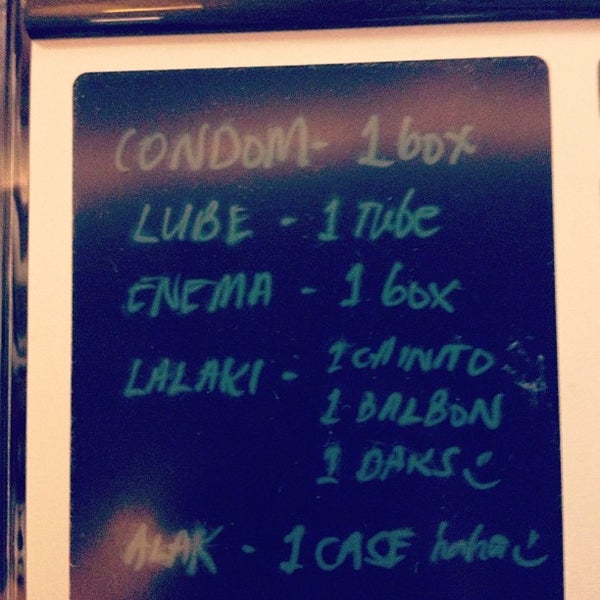 CONDOM - 1 box
LUBE - 1 Tube
ENEMA - 1 box
LALAKI - 1 CAINTO
1 BALBON
1 DAKS
ALAK - 1 CASE haha